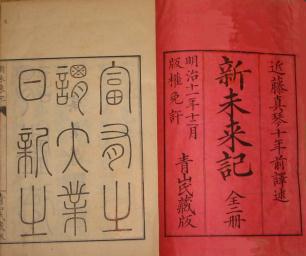 近藤真琴十年前譯述
新未来記
全二册
明治十一年十二月
版權免許
青山氏藏版
富有之
謂大業
日新之